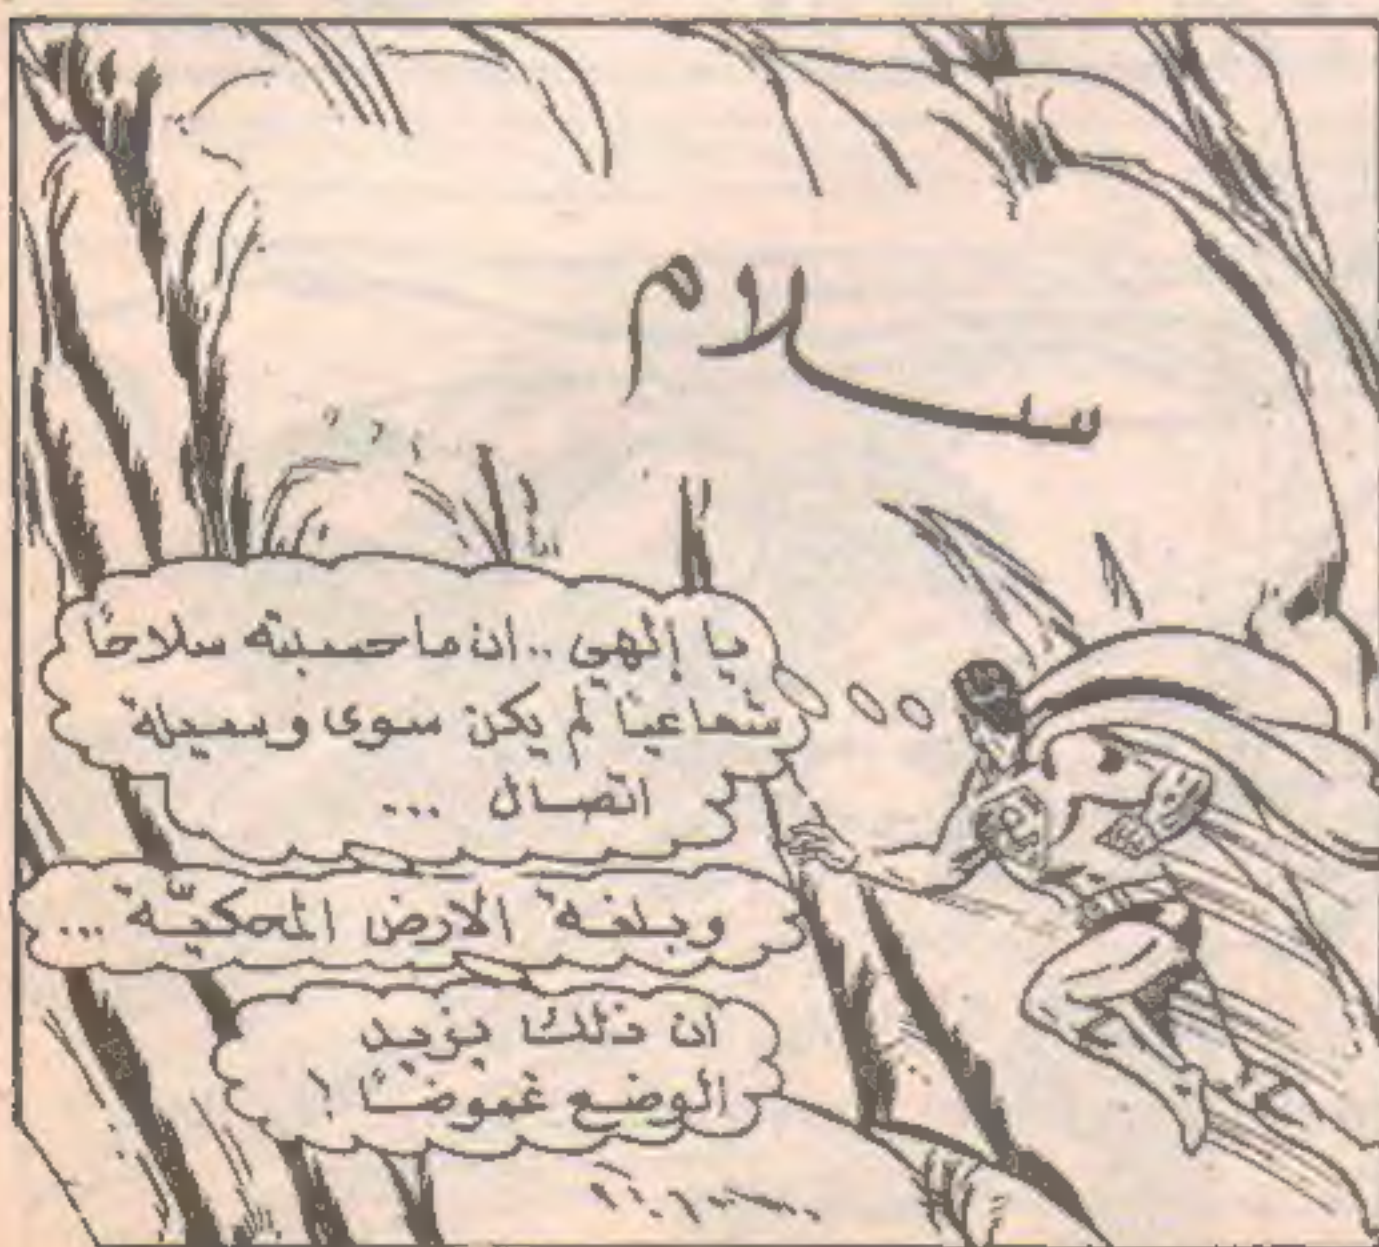 سلام
يا إلهي .. ان ما حسبته سلاحًا
شعاعيًا لم يكن سوى وسيلة
اتصال ...
وبلغة الارض المحكيّة ...
ان ذلك يزيد
الوضع غموضًا !